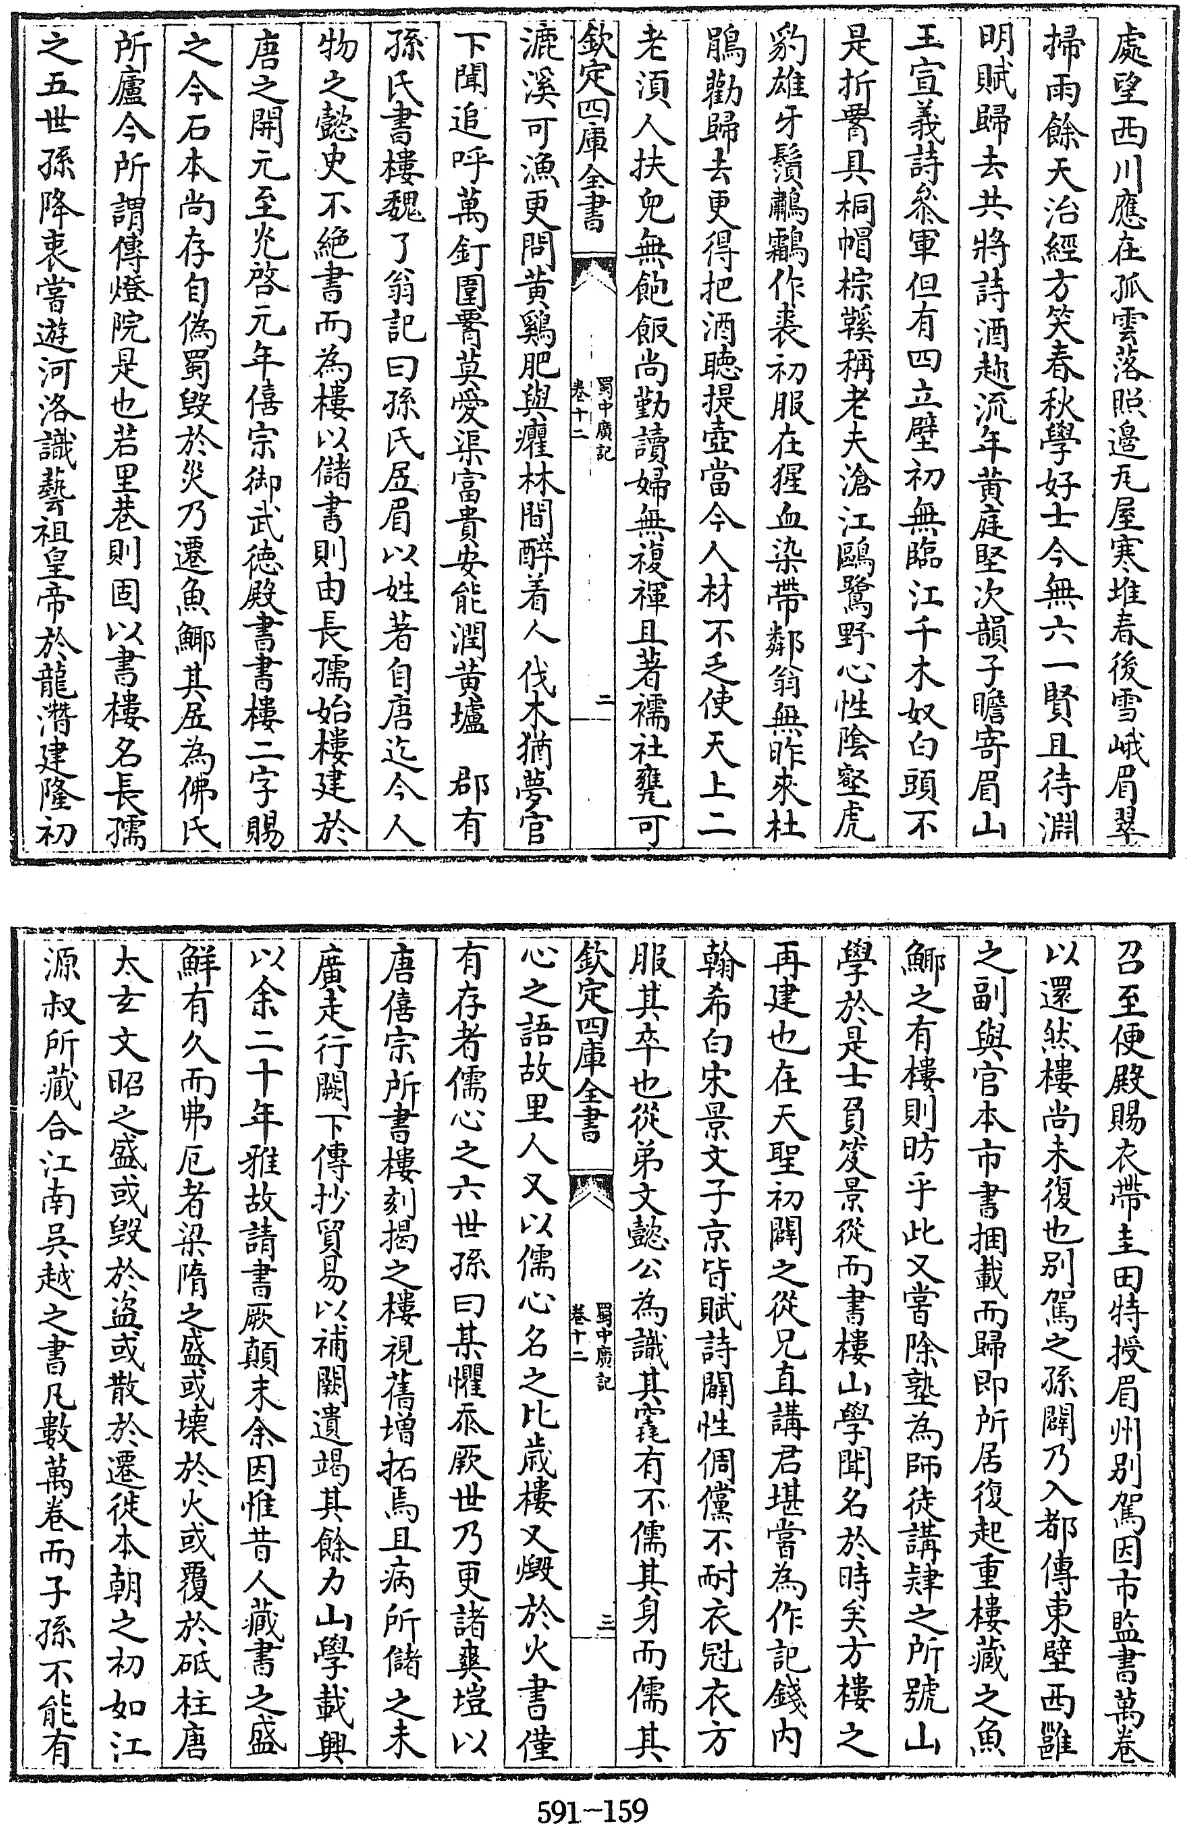 處望西川應在孤雲落照邊瓦屋寒堆春後雪峨眉翠
掃雨餘天治經方笑春秋學好士今無六一賢且待淵
明賦歸去共將詩酒趂流年黄庭堅次韻子瞻寄眉山
王宣義詩叅軍但有四立壁初無臨江千木奴白頭不
是折腎具桐帽棕鞵稱老夫滄江鷗鷺野心性陰壑虎
豹雄牙鬚鸘作裘初服在猩血染帶鄰翁無昨來杜
鵑勸歸去更得把酒聽提壺當今人材不乏使天上二
老湏人扶兒無飽飯尚勤讀婦無複褌且著襦社甕可
欽定四庫全書
蜀中廣記
卷十二
二
漉溪可漁更問黄鷄肥與癯林間醉着人伐木猶夢官
下聞追呼萬釘圍腎莫愛渠富貴安能潤黄壚 郡有
孫氏書樓魏了翁記曰孫氏居眉以姓著自唐迄今人
物之懿史不絶書而為樓以儲書則由長孺始樓建於
唐之開元至光啓元年僖宗御武德殿書書樓二字賜
之今石本尚存自偽蜀毁於災乃遷魚鯽其居為佛氏
所廬今所謂傳燈院是也若里巷則固以書樓名長孺
之五世孫降衷嘗遊河洛識藝祖皇帝於龍濳建隆初
召至便殿賜衣帶圭田特授眉州别駕因市監書萬卷
以還然樓尚未復也别駕之孫闢乃入都傳東壁西雝
之副與官本市書捆載而歸即所居復起重樓藏之魚
鯽之有樓則昉乎此又嘗除塾為師徒講肄之所號山
學於是士負笈景從而書樓山學聞名於時矣方樓之
再建也在天聖初闢之從兄直講君堪嘗為作記錢内
翰希白宋景文子京皆賦詩闢性倜儻不耐衣冠衣方
服其卒也從弟文懿公為識其窀有不儒其身而儒其
欽定四庫全書
蜀中廣記
卷十二
三
心之語故里人又以儒心名之比歲樓又燬於火書僅
有存者儒心之六世孫曰某懼忝厥世乃更諸爽塏以
唐僖宗所書樓刻揭之樓視舊增拓焉且病所儲之未
廣走行闕下傳抄貿易以補闕遺竭其餘力山學載興
以余二十年雅故請書厥顛末余因惟昔人藏書之盛
鮮有久而弗厄者梁隋之盛或壊於火或覆於砥柱唐
太玄文昭之盛或毁於盜或散於遷徙本朝之初如江
源叔所藏合江南吳越之書凡數萬卷而子孫不能有
591-159